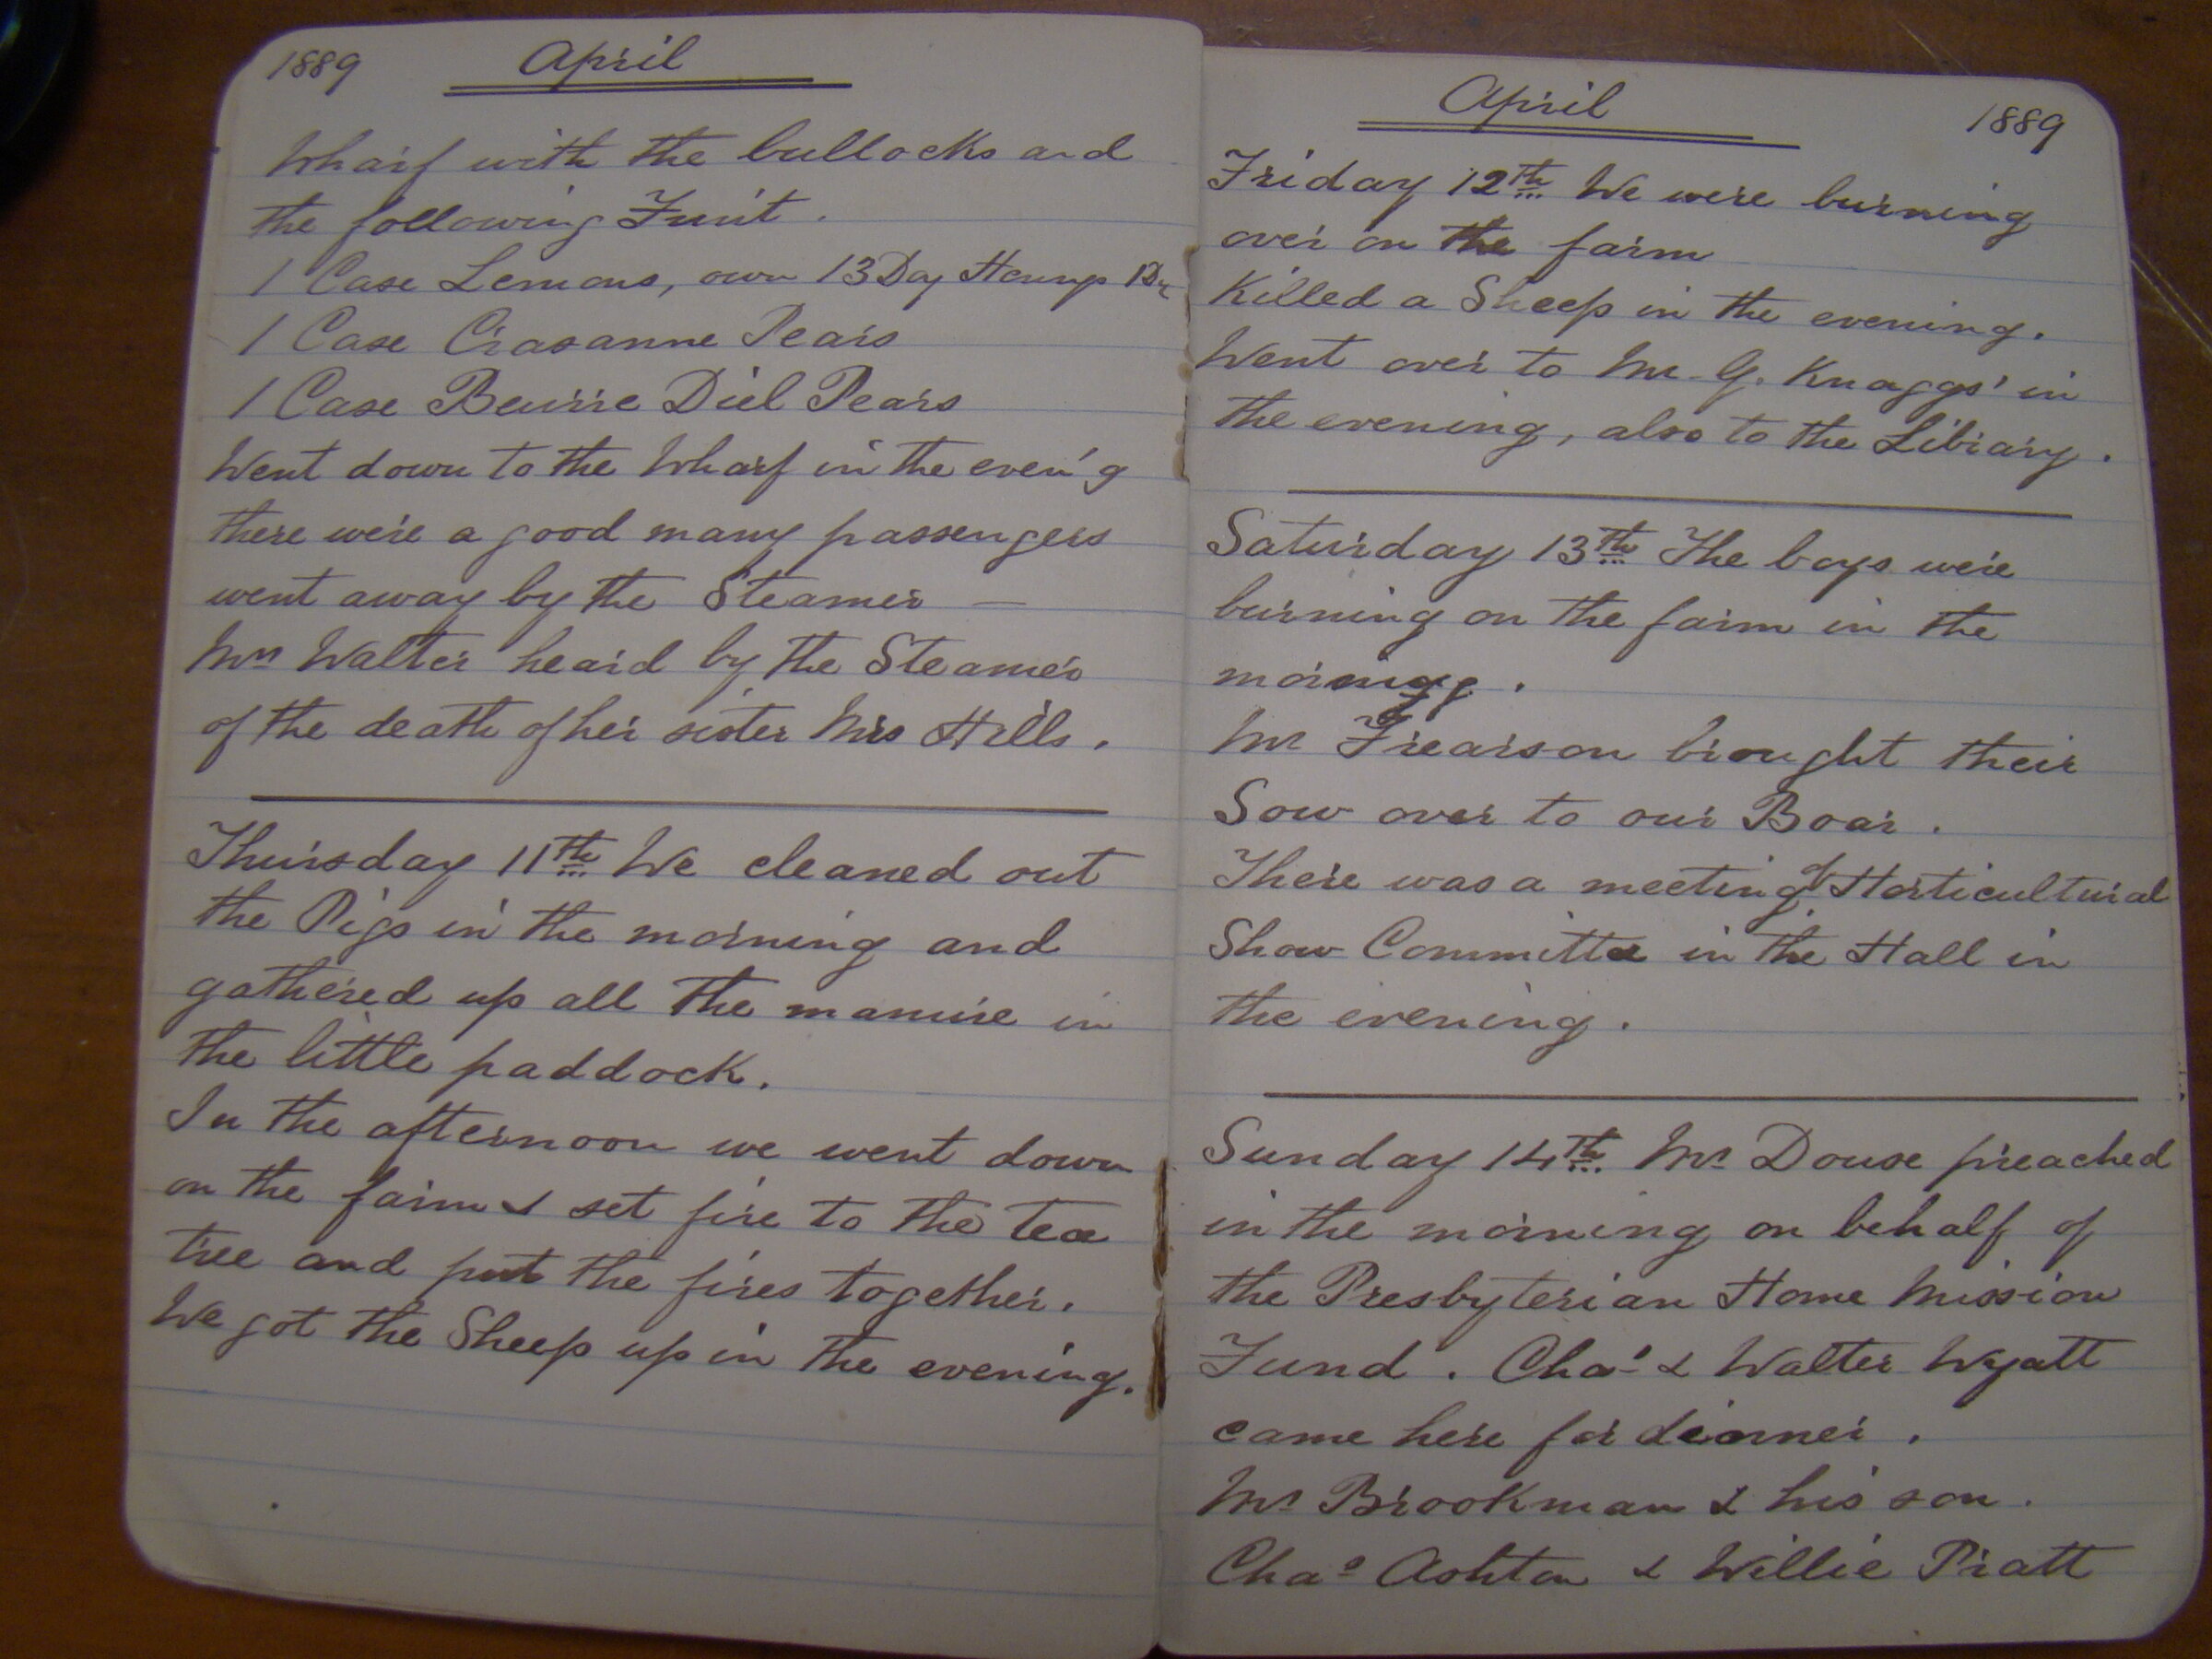 1889 April
Wharf with the bullocks and
the following Fruit.
1 Case Lemons, own 13 Doz 1 Dz
1 Case Crasanne Pears
1 Case Beurre Diel Pears
Went down to the Wharf in the even'g
there were a good many passengers
went away by the Steamer —
Mrs Walter heard by the Steamer
of the death of her sister Mrs Hills.
Thursday 11th We cleaned out
the Pigs in the morning and
gathered up all the manure in
the little paddock.
In the afternoon we went down
on the farm & set fire to the tea
tree and put the fires together.
We got the Sheep up in the evening.
April 1889
Friday 12th We were burning
over on the farm
Killed a Sheep in the evening.
Went over to Mr G. Knaggs' in
the evening, also to the Library.
Saturday 13th The boys were
burning on the farm in the
morning.
Mr Frearson brought their
Sow over to our Boar.
There was a meeting of Horticultural
Show Committee in the Hall in
the evening.
Sunday 14th Mr Douse preached
in the morning on behalf of
the Presbyterian Home Mission
Fund. Chas & Walter Wyatt
came here for dinner.
Mr Brookman & his son.
Chas Ashton & Willie Pratt